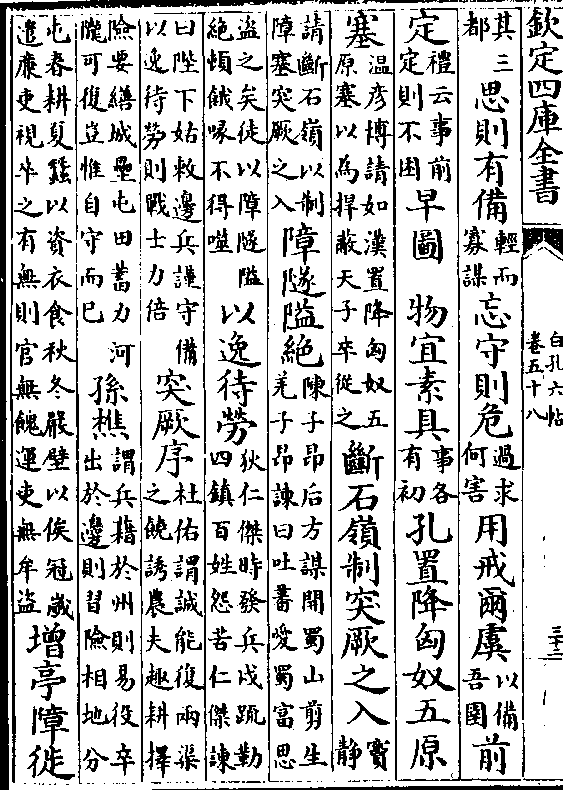 欽定四庫全書
白孔六帖
卷五十八
三十三
其三都思則有備輕而寡謀忘守則危過求何害用戒爾虞以備吾圉前
定禮云事前定則不困早圖物宜素具事各有初孔置降匈奴五原
塞温彦博請如漢置降匈奴五原塞以為捍蔽天子卒從之斷石嶺制突厥之入竇靜
請斷石嶺以制障塞突厥之入障隧隘絶陳子昂后方謀開蜀山剪生羌子昂諫曰吐蕃愛蜀富思
盜之矣徒以障隧隘絶頓餓喙不得噬以逸待勞狄仁傑時發兵戍疏勒四鎮百姓怨苦仁傑諫
曰陛下姑敕邊兵謹守備以逸待勞則戰士力倍突厥序杜佑謂誠能復兩渠之饒誘農夫趣耕擇
險要繕城壘屯田蓄力河隴可復豈惟自守而已孫樵謂兵籍於州則易役卒出於邊則習險相地分
屯春耕夏蠶以資衣食秋冬嚴壁以俟冦歲遣廉吏視卒之有無則官無餽運吏無牟盗增亭障徙